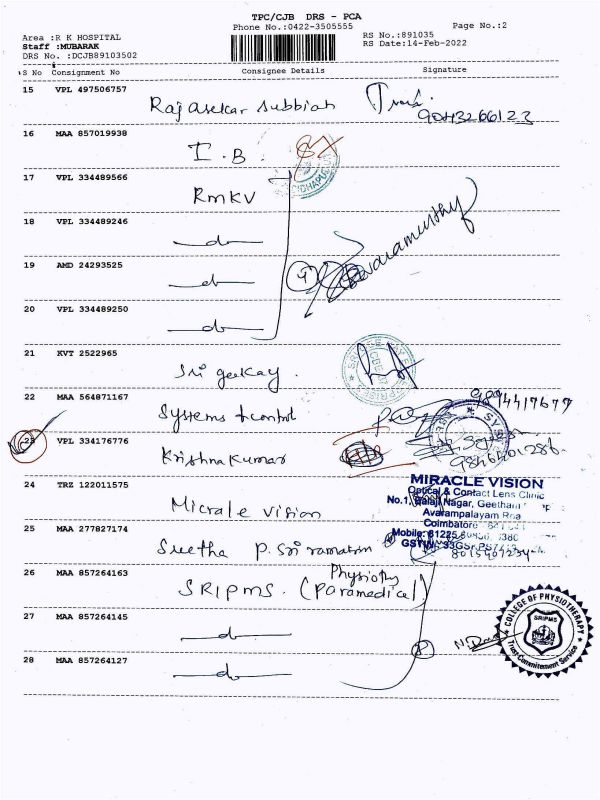 TPC/CJB DRS - PCA
Phone No.:0422-3505555
Page No.:2
Area :R K HOSPITAL
RS No.:891035
Staff :MUBARAK
RS Date:14-Feb-2022
DRS No. :DCJB89103502
S No Consignment No Consignee Details Signature
15 VPL 497506757
Rajasekar Subbiah
9043266123
16 MAA 857019938
I.B.
17 VPL 334489566
RMKV
18 VPL 334489246
do
19 AMD 24293525
do
20 VPL 334489250
do
21 KVT 2522965
Sri geekay.
22 MAA 564871167
Systems & control
9894417679
23 VPL 334176776
Krishna Kumar
24 TRZ 122011575
Micrale vision
MIRACLE VISION
Optical & Contact Lens Clinic
No.1, Balaji Nagar,
Avarampalayam
Coimbatore
Mobile:
25 MAA 277827174
Sreetha P.
26 MAA 857264163
SRIPMS. (Physiothy
Paramedical)
27 MAA 857264145
do
COLLEGE OF PHYSIOTHERAPY
SRIPMS
Trust Commitement Service
28 MAA 857264127
do